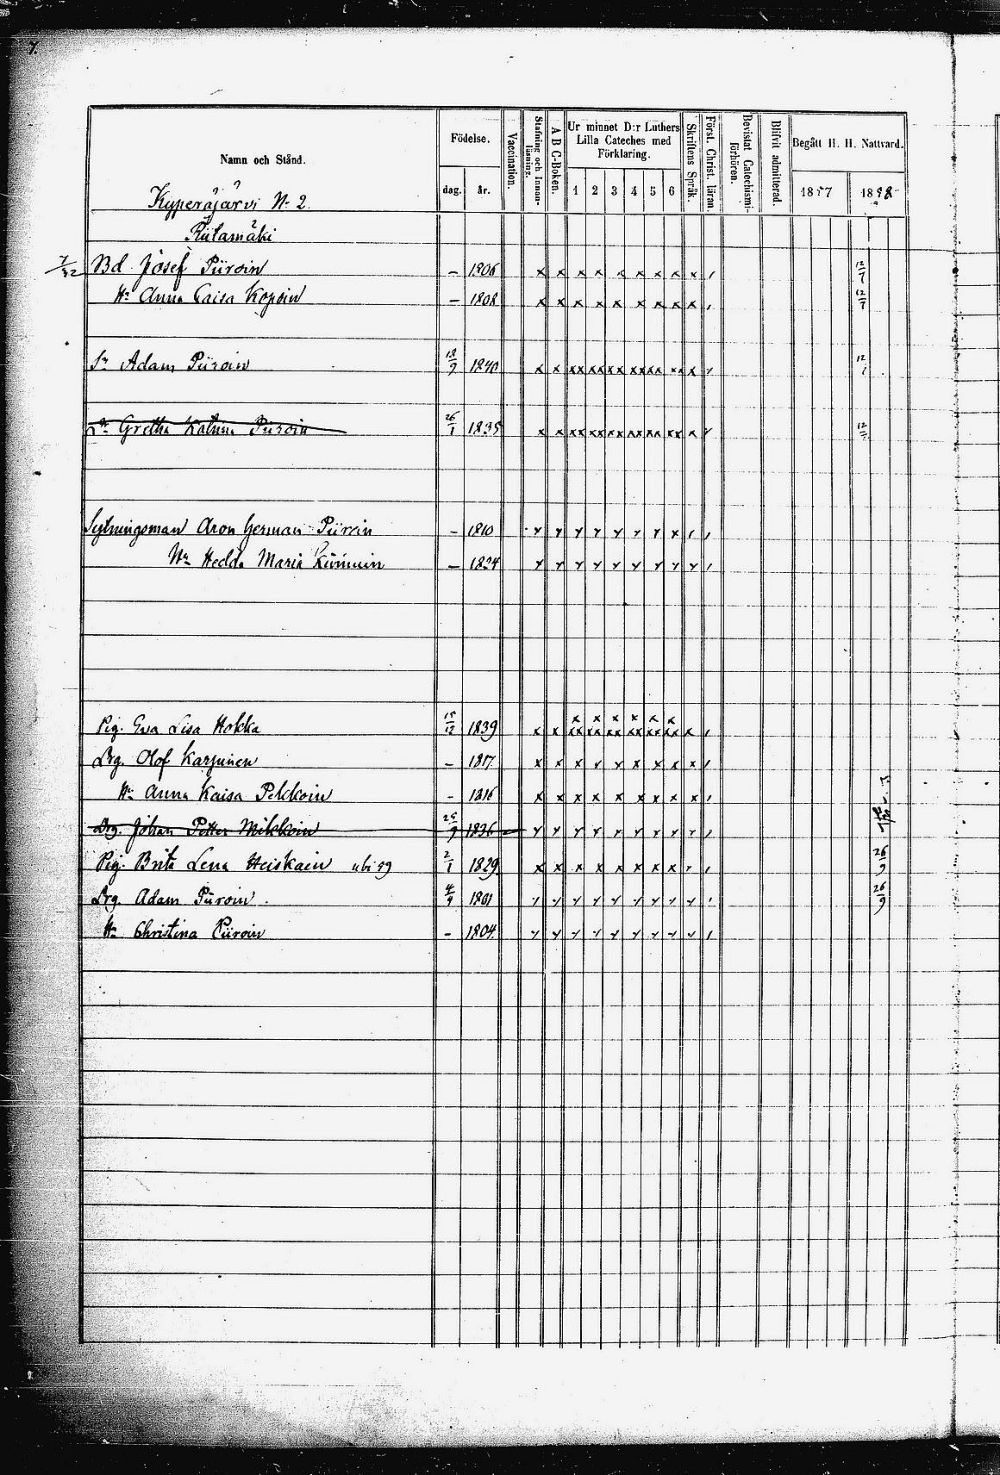 7.
Namn och Stånd.
Födelse.
dag.
år.
Vaccination.
Stafning och Innanläsning.
A B C-Boken.
Ur minnet D:r Luthers Lilla Cateches med Förklaring.
1 2 3 4 5 6
Skriftens Språk.
Först. Christ. läran.
Bevistat Catechismiförhören.
Blifvit admitterad.
Begått H. H. Nattvard.
1857
1858
Kyperäjärvi N:o 2
Riitamäki
Bd Josef Piiroin – 1806 x x x x x x x x x 12/7
Hr Anna Caisa Kopoin – 1808 x x x x x x x x x 12/7
Sr Adam Piiroin 18/9 1840 x x xx xx xx xx xx xx x
Dr Gretha Katrina Piiroin 26/1 1835 x x xx xx xx xx xx xx x
Sytningsman Aron Herman Piiroin – 1810
Hr Hedda Maria – 1824
Pig. Eva Lisa Hokka 15/12 1839 x x xx xx xx xx xx xx x
Drg. Olof Karjunen – 1817 x x x x x x x x x
Hr Anna Kaisa Pekkoin – 1816 x x x x x x x x x
Drg. Johan Petter Mikkoin 25/9 1836
Pig. Brita Lena Heiskain 2/1 1829 x x x x x x x x 26/9
Drg. Adam Piiroin 4/9 1801 26/9
Hr Christina Piiroin – 1804